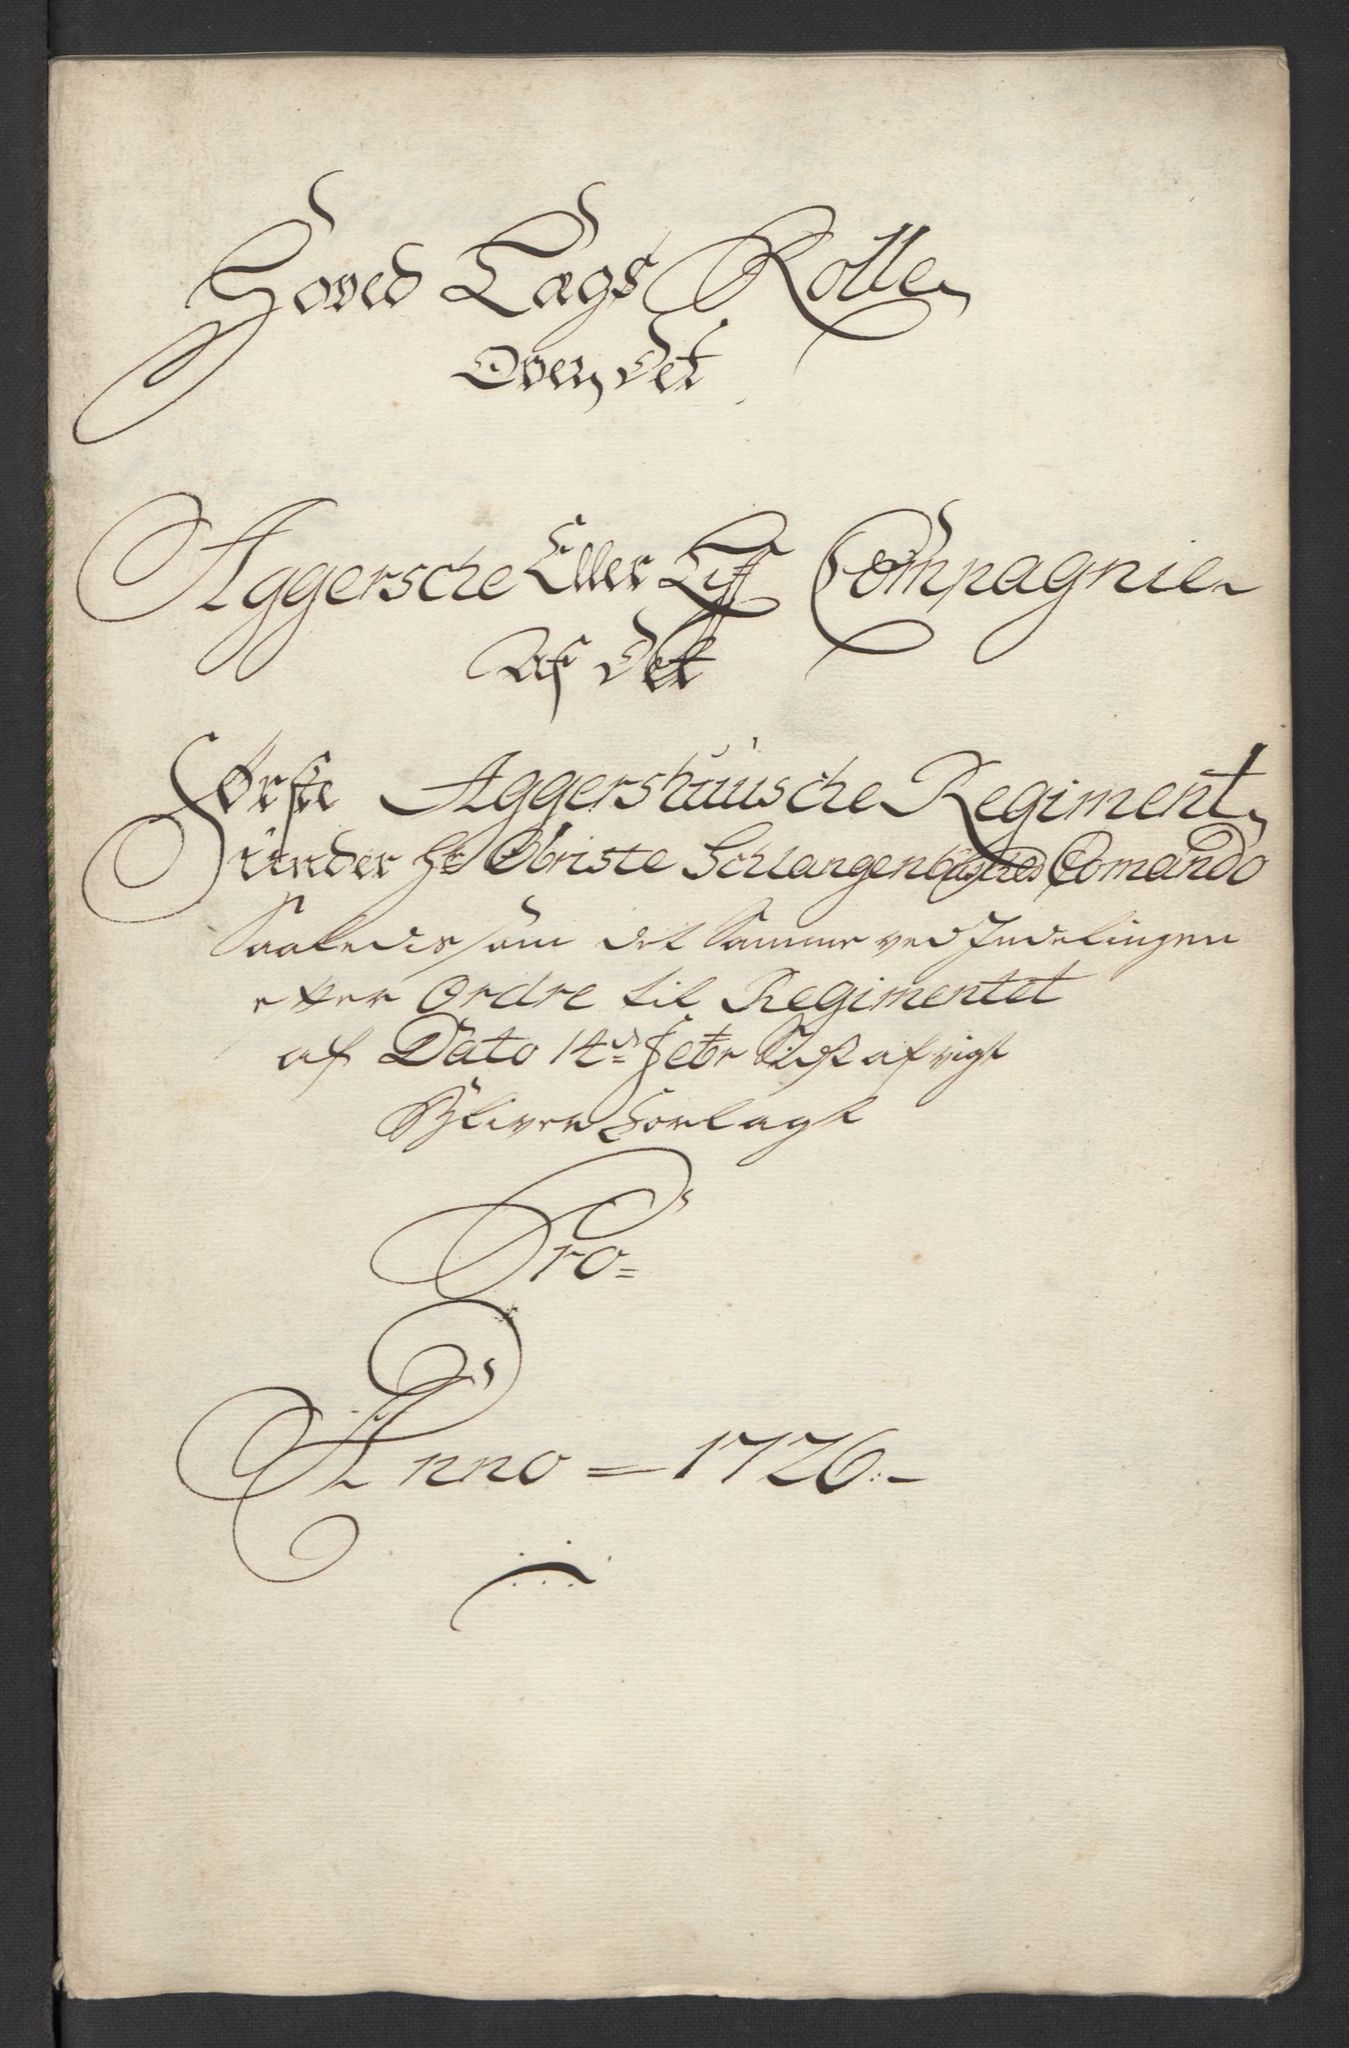 Hoved Lægs Rolle
Over det
Aggersche Eller Liff Compagnie
Af Det
Førfte Aggershuusche Regiment
ünder Hr Obriste Schlangenbusches Comando
Saaledis som det Samme ved Indelingen
efter Ordre til Regimentet
af Dato 14de Febr Sidst afvigt
Bliver Forlagt
Pro=
Anno = 1726.-